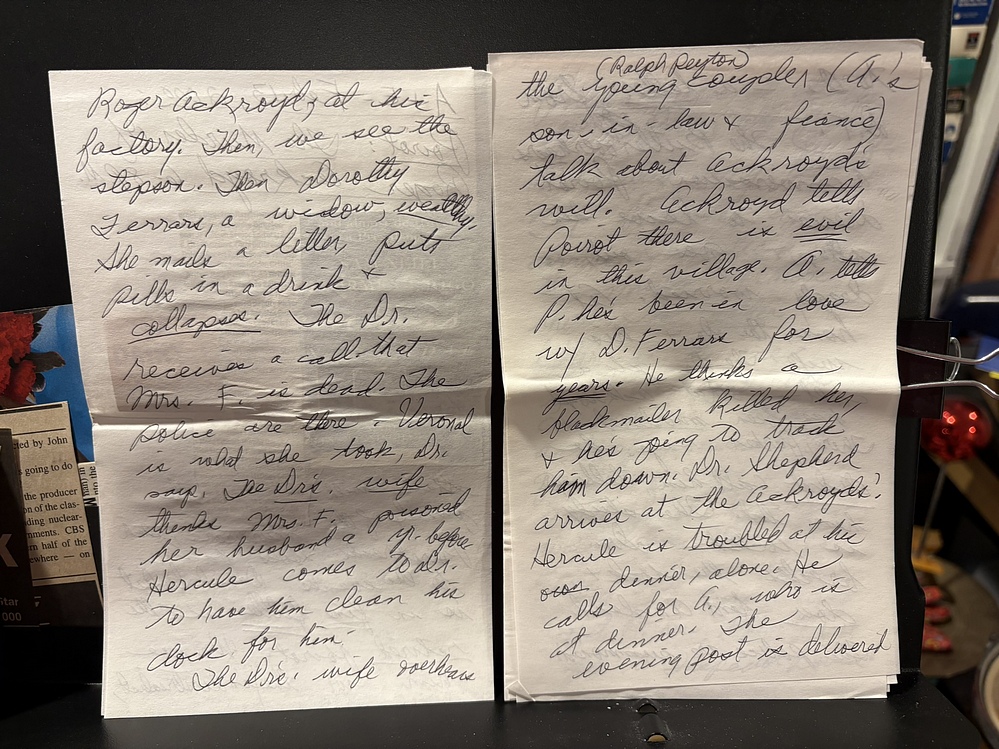 Roger Ackroyd, at his
factory. Then, we see the
stepson. Then Dorothy
Ferrars, a widow, wealthy.
She mails a letter, puts
pills in a drink &
collapses. The Dr.
receives a call that
Mrs. F. is dead. The
police are there. Veronal
is what she took, Dr.
says. The Dr's. wife
thinks Mrs. F. poisoned
her husband a yr. before
Hercule comes to Dr.
to have him clean his
clock for him.
The Dr's. wife overhears
(Ralph Peyton)
the young couple, (A.'s
son-in-law & fiancé)
talk about Ackroyd's
will. Ackroyd tells
Poirot there is evil
in this village. A. tells
P. he's been in love
w/ D. Ferrars for
years. He thinks a
blackmailer killed her,
& he's going to track
him down. Dr. Shepherd
arrives at the Ackroyds'.
Hercule is troubled at his
dinner, alone. He
calls for A., who is
at dinner. The
evening post is delivered
ded by John
going to do
the producer
on of the clas-
ding nuclear-
nments. CBS
rn half of the
ewhere — on
Star
000